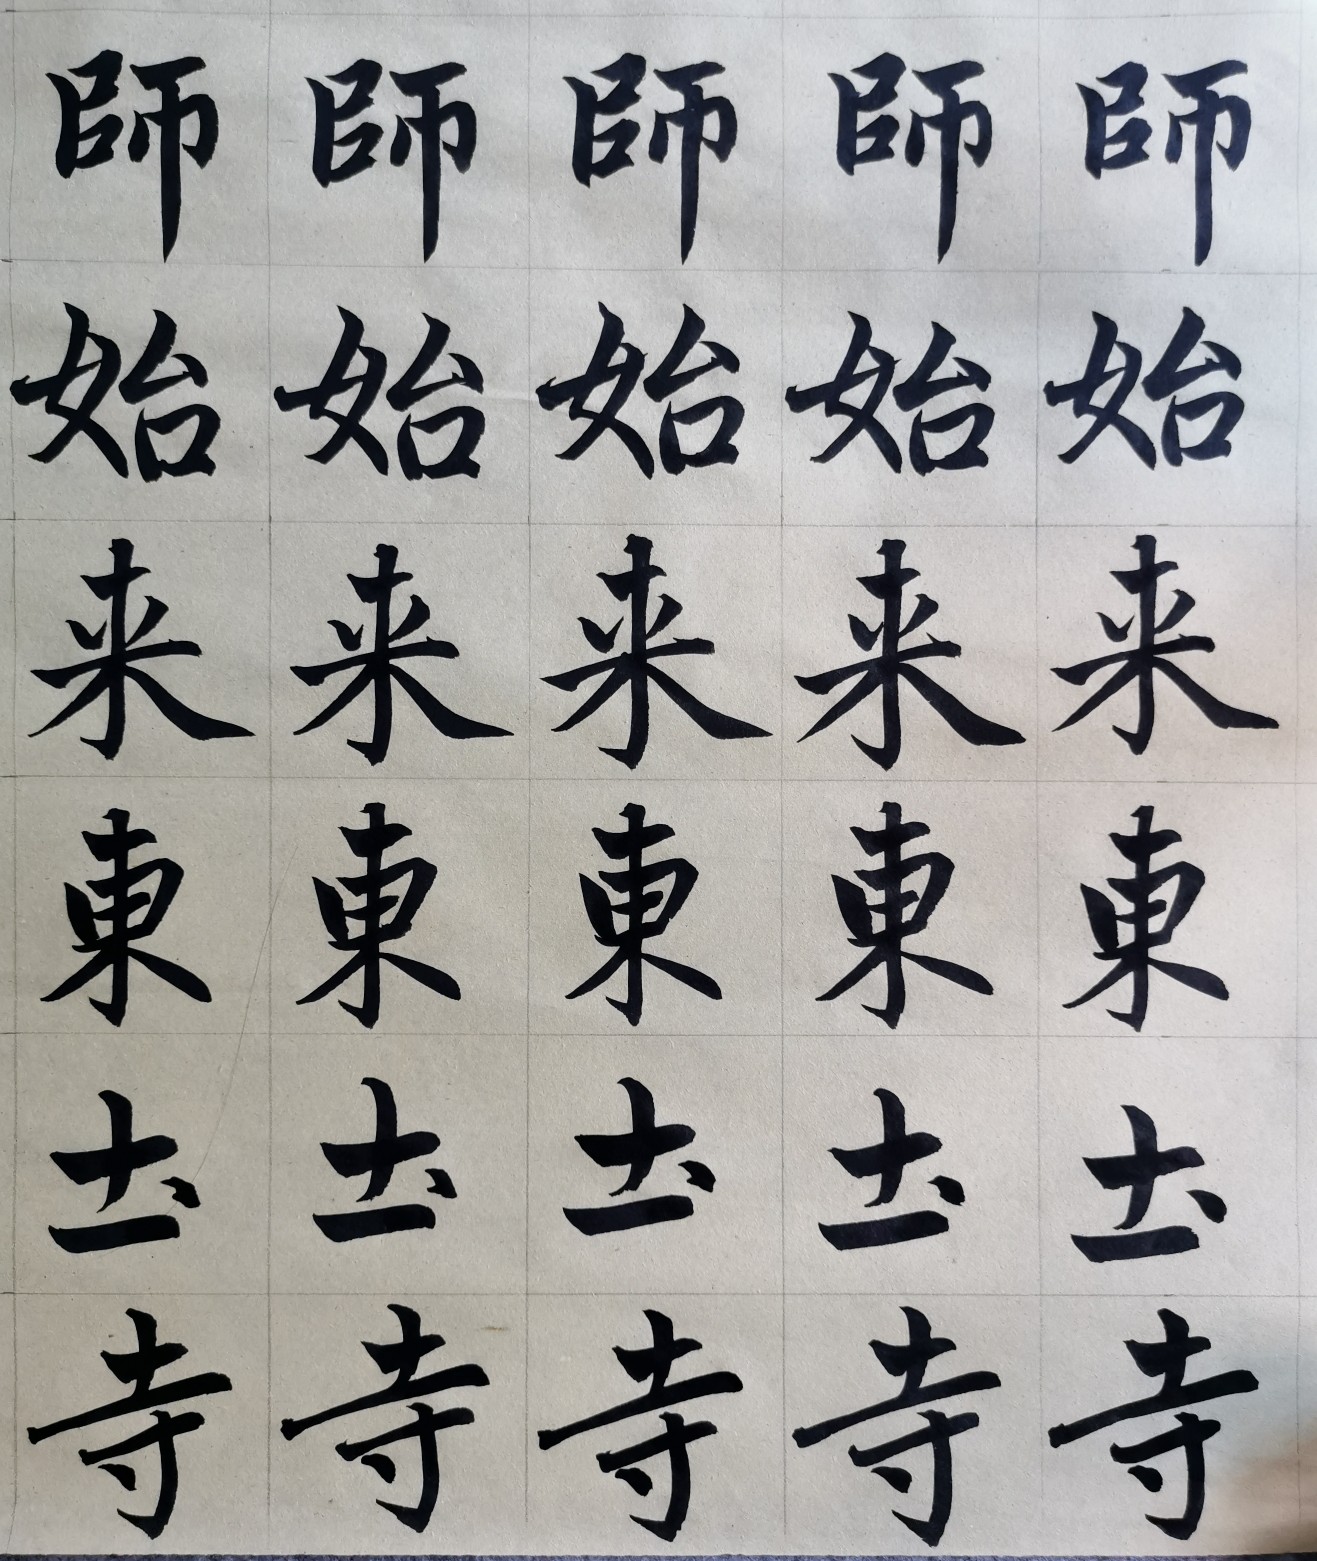 師師師師師
始始始始始
来来来来来
東東東東東
圡圡圡圡圡
寺寺寺寺寺